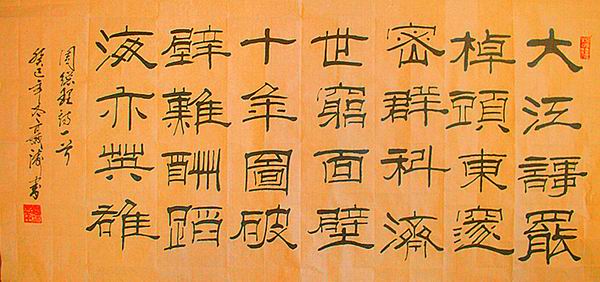 大江謌罷
棹頭東邃
密群科濟
世窮面壁
十年圖破
壁難酬蹈
海亦英雄
周總理詩一首
癸巳年冬書